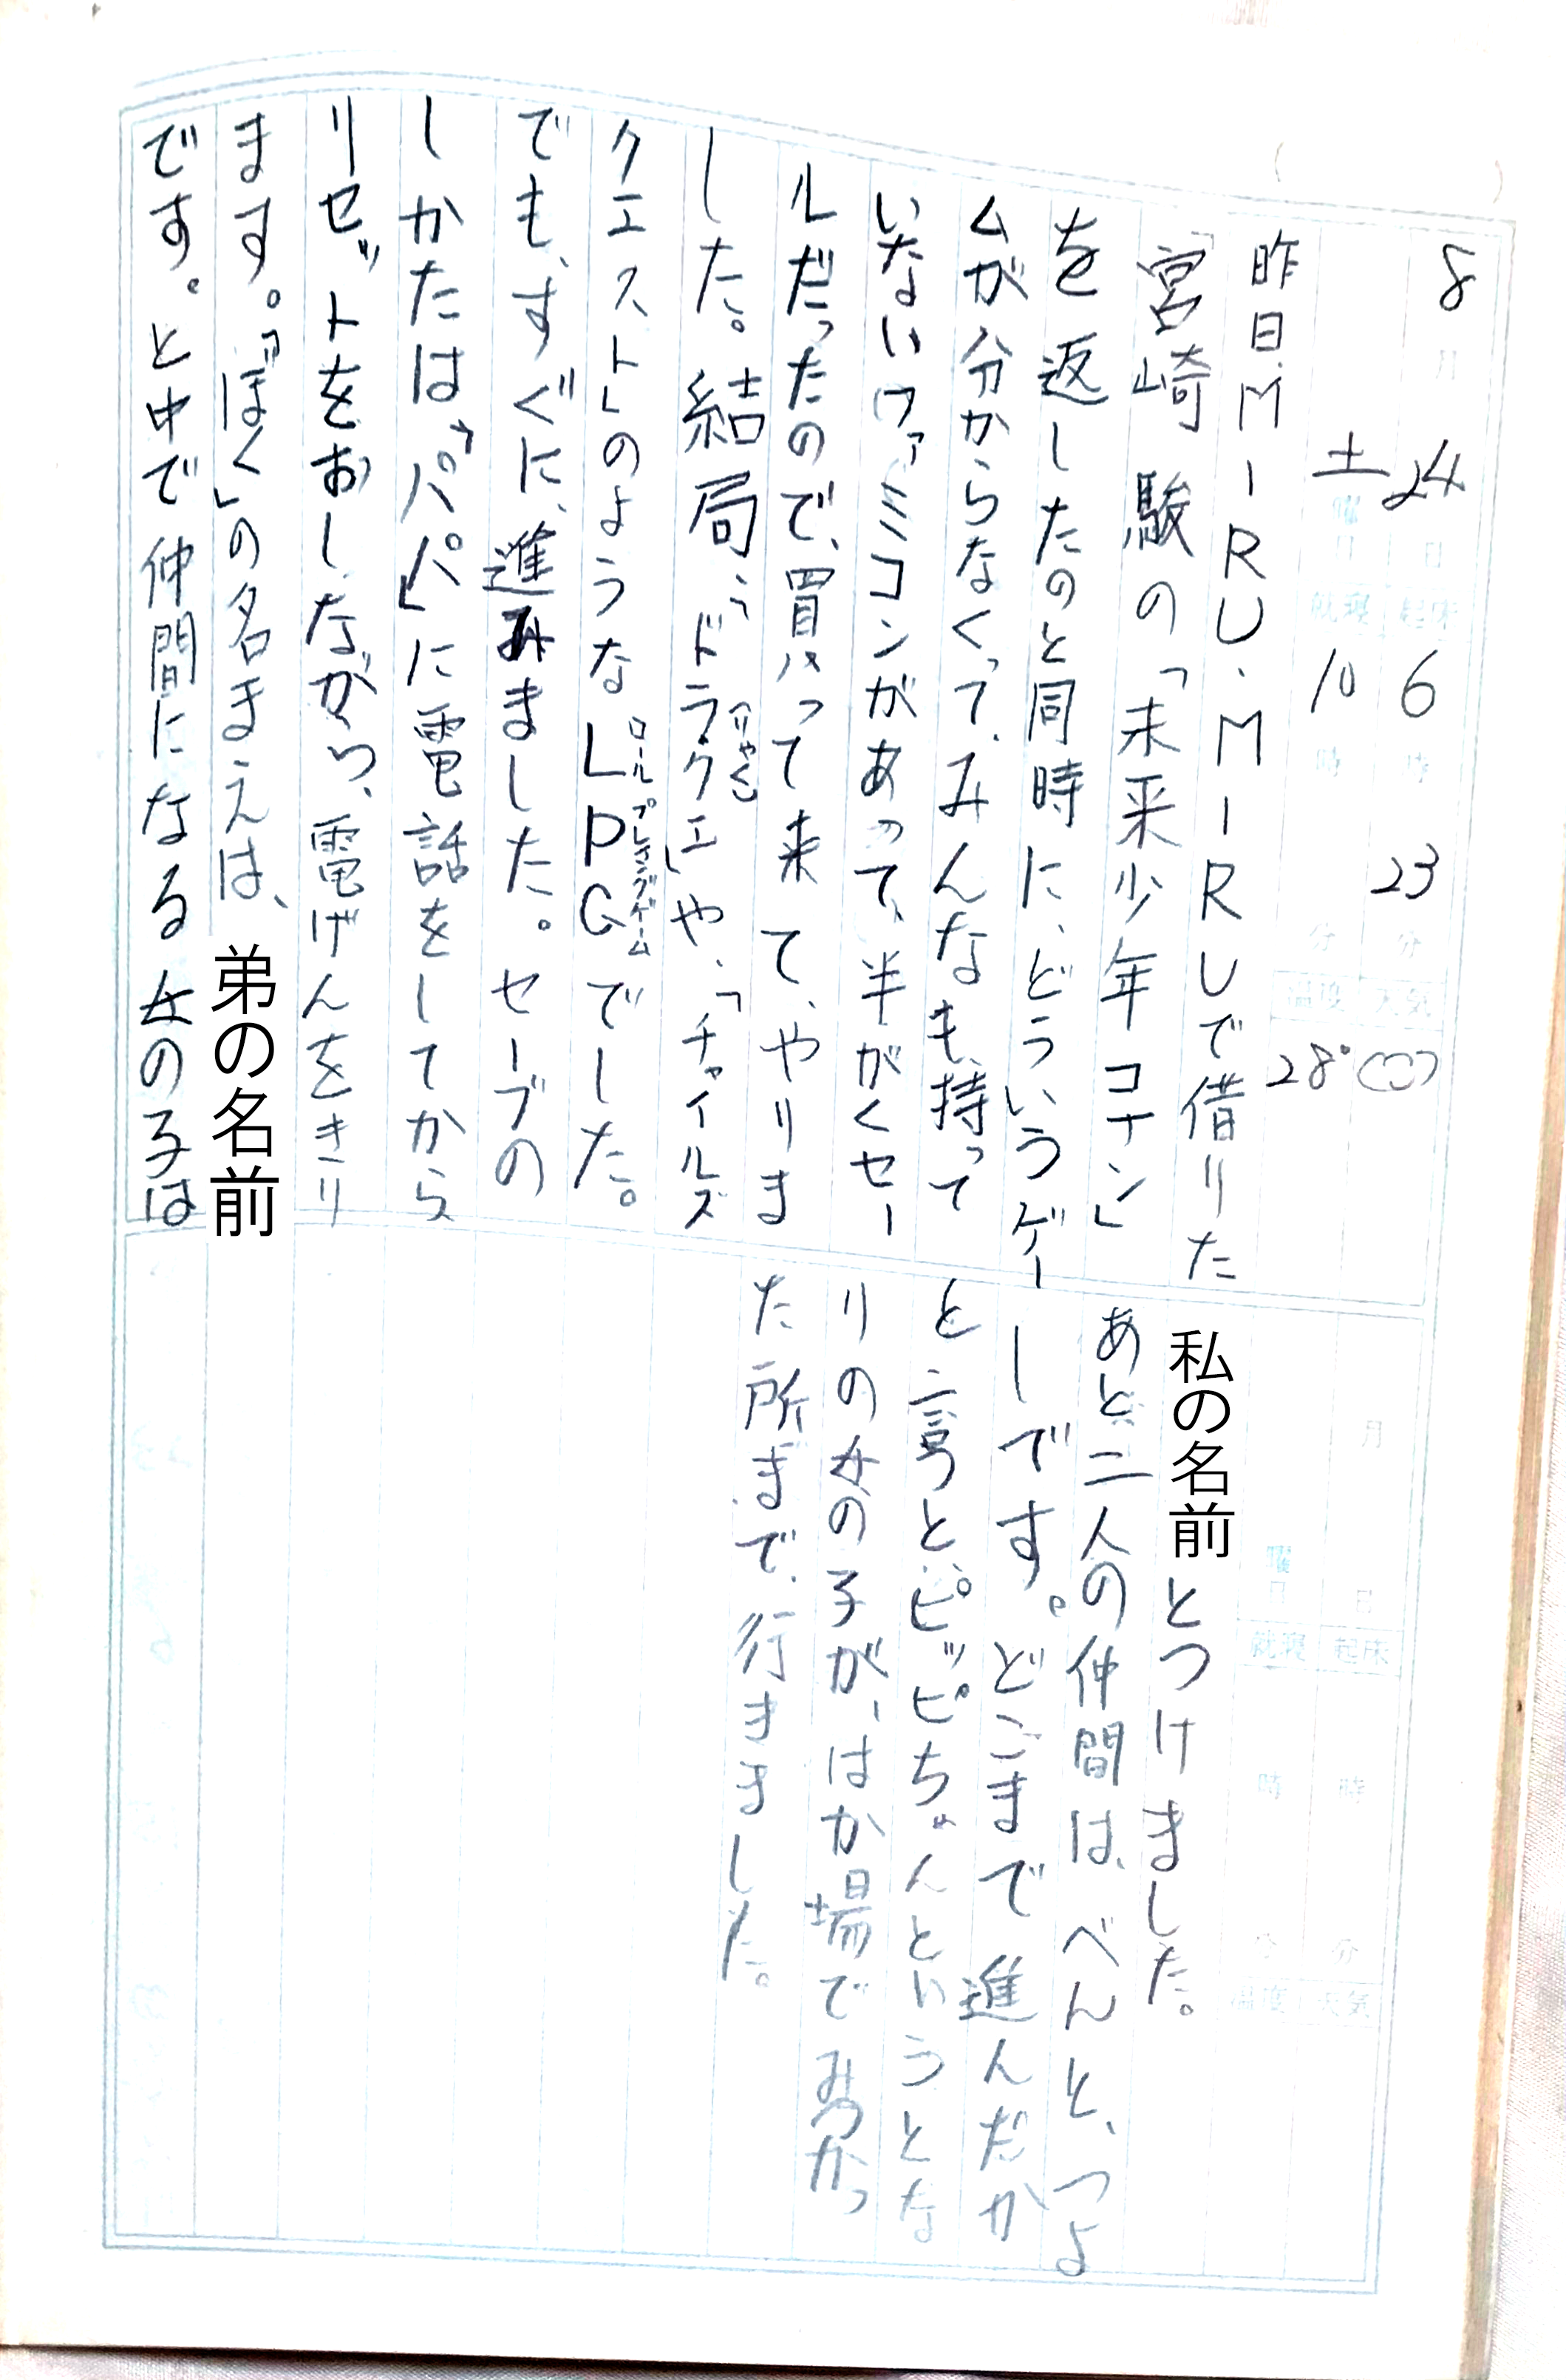 8月24日 起床6時23分 天気
土曜日 就寝10時 分 温度28°
昨日、MーRU・MーRUで借りた
「宮崎 駿の「未来少年コナン」
を返したのと同時に、どういうゲー
ムが分からなくって、みんなも、持って
いないファミコンがあって、半がくセー
ルだったので、買って来て、やりま
した。結局、「ドラクエ」(りゃく)や、「チャイルズ
クエスト」のようなLPG(ロールプレイングゲーム)でした。
でも、すぐに、進みました。セーブの
しかたは、「パパ」に電話をしてから
リセットをおしながら、電げんをきり
ます。「ぼく」の名まえは、弟の名前
です。と中で仲間になる女の子は
私の名前とつけました。
あと二人の仲間は、べんと、つよ
しです。どこまで進んだか
と言うと、ピッピちゃんというとな
りの女の子が、はか場でみつかっ
た所まで、行きました。
月 日 起床 時 分 天気
曜日 就寝 時 分 温度